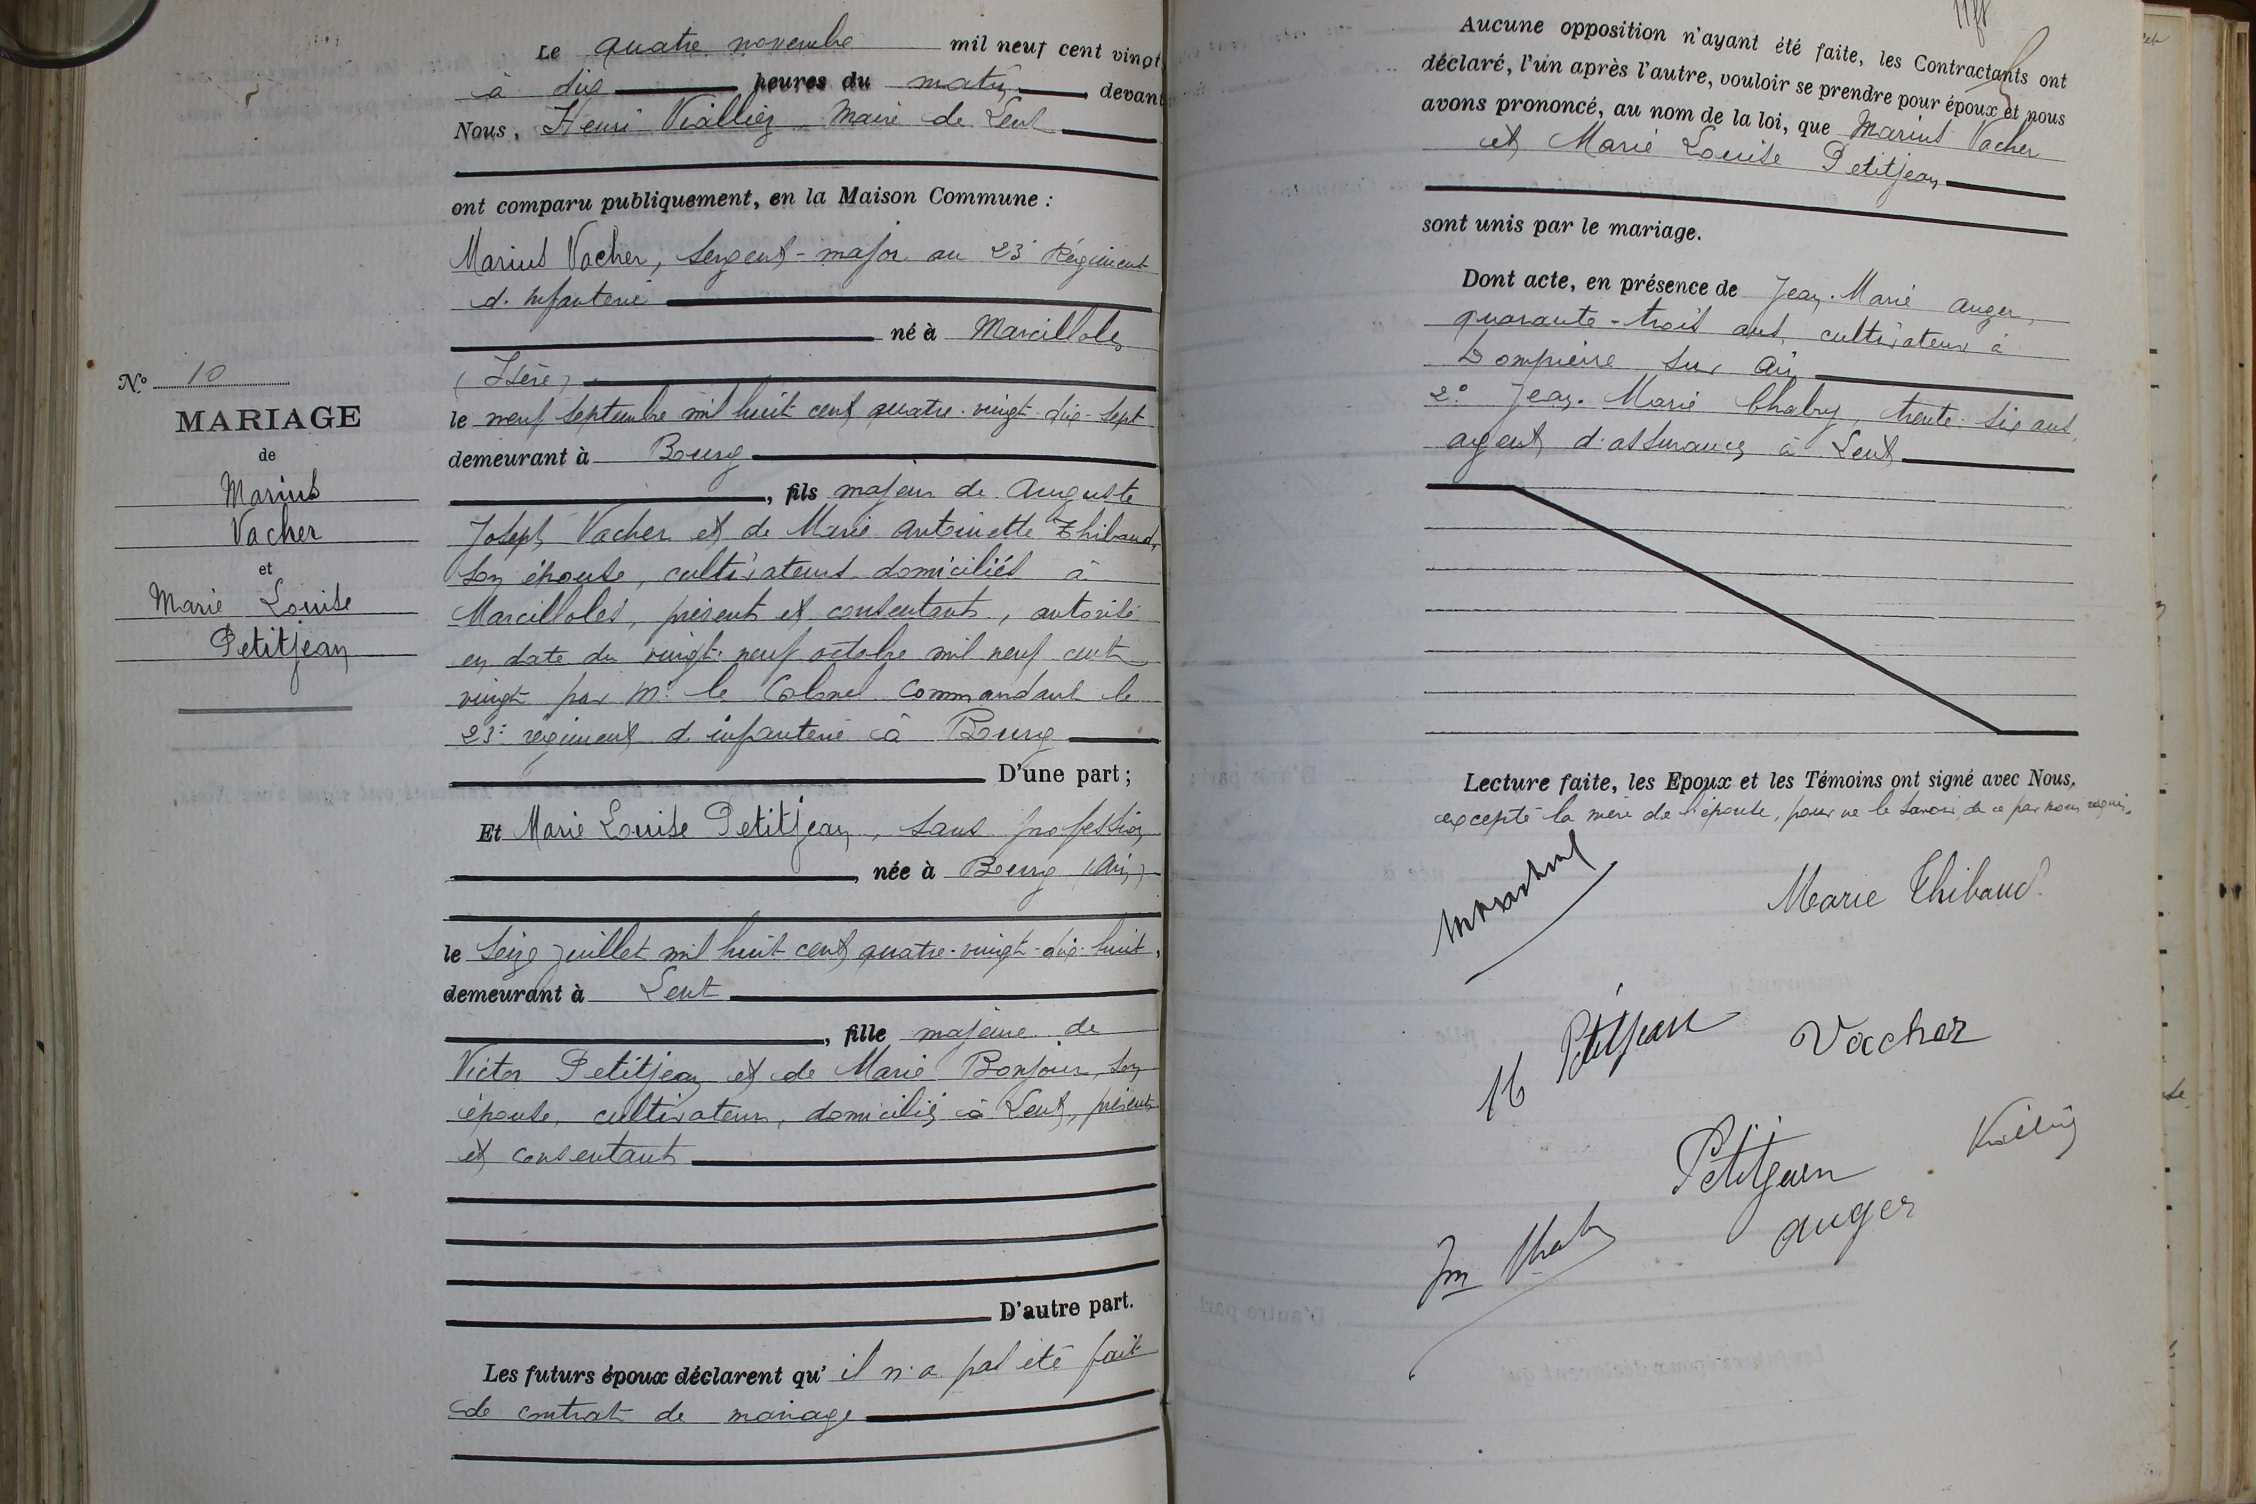 Le quatre novembre mil neuf cent vingt
à dix heures du matin, devant
Nous, Henri Vialliez Maire de Lent
ont comparu publiquement, en la Maison Commune :
Marius Vacher, sergent-major au 23e Régiment
d'infanterie
né à Marcilloles
(Isère)
le neuf septembre mil huit cent quatre-vingt-dix-sept
demeurant à Bourg
, fils majeur de Auguste
Joseph Vacher et de Marie Antoinette Thibaud,
son épouse, cultivateurs domiciliés à
Marcilloles, présents et consentants, autorisé
en date du vingt-neuf octobre mil neuf cent
vingt par Mr le Colonel Commandant le
23e régiment d'infanterie à Bourg
D'une part ;
Et Marie Louise Petitjean, sans profession
, née à Bourg (Ain)
le seize juillet mil huit cent quatre-vingt-dix-huit,
demeurant à Lent
, fille majeure de
Victor Petitjean et de Marie Bonjour, son
épouse, cultivateurs, domiciliés à Lent, présents
et consentants
D'autre part.
Les futurs époux déclarent qu' il n'a pas été fait
de contrat de mariage
N° 10
MARIAGE
de
Marius
Vacher
et
Marie Louise
Petitjean
Aucune opposition n'ayant été faite, les Contractants ont
déclaré, l'un après l'autre, vouloir se prendre pour époux et nous
avons prononcé, au nom de la loi, que Marius Vacher
et Marie Louise Petitjean
sont unis par le mariage.
Dont acte, en présence de Jean-Marie Auger,
quarante-trois ans, cultivateur à
Dompierre sur Ain
2° Jean-Marie Chabry, trente-six ans,
agent d'assurances à Lent
Lecture faite, les Epoux et les Témoins ont signé avec Nous,
excepté la mère de l'épouse, pour ne le savoir, de ce par nous requis.
Marie Thibaud
Petitjean
Vacher
Petitjean
Auger
Jm